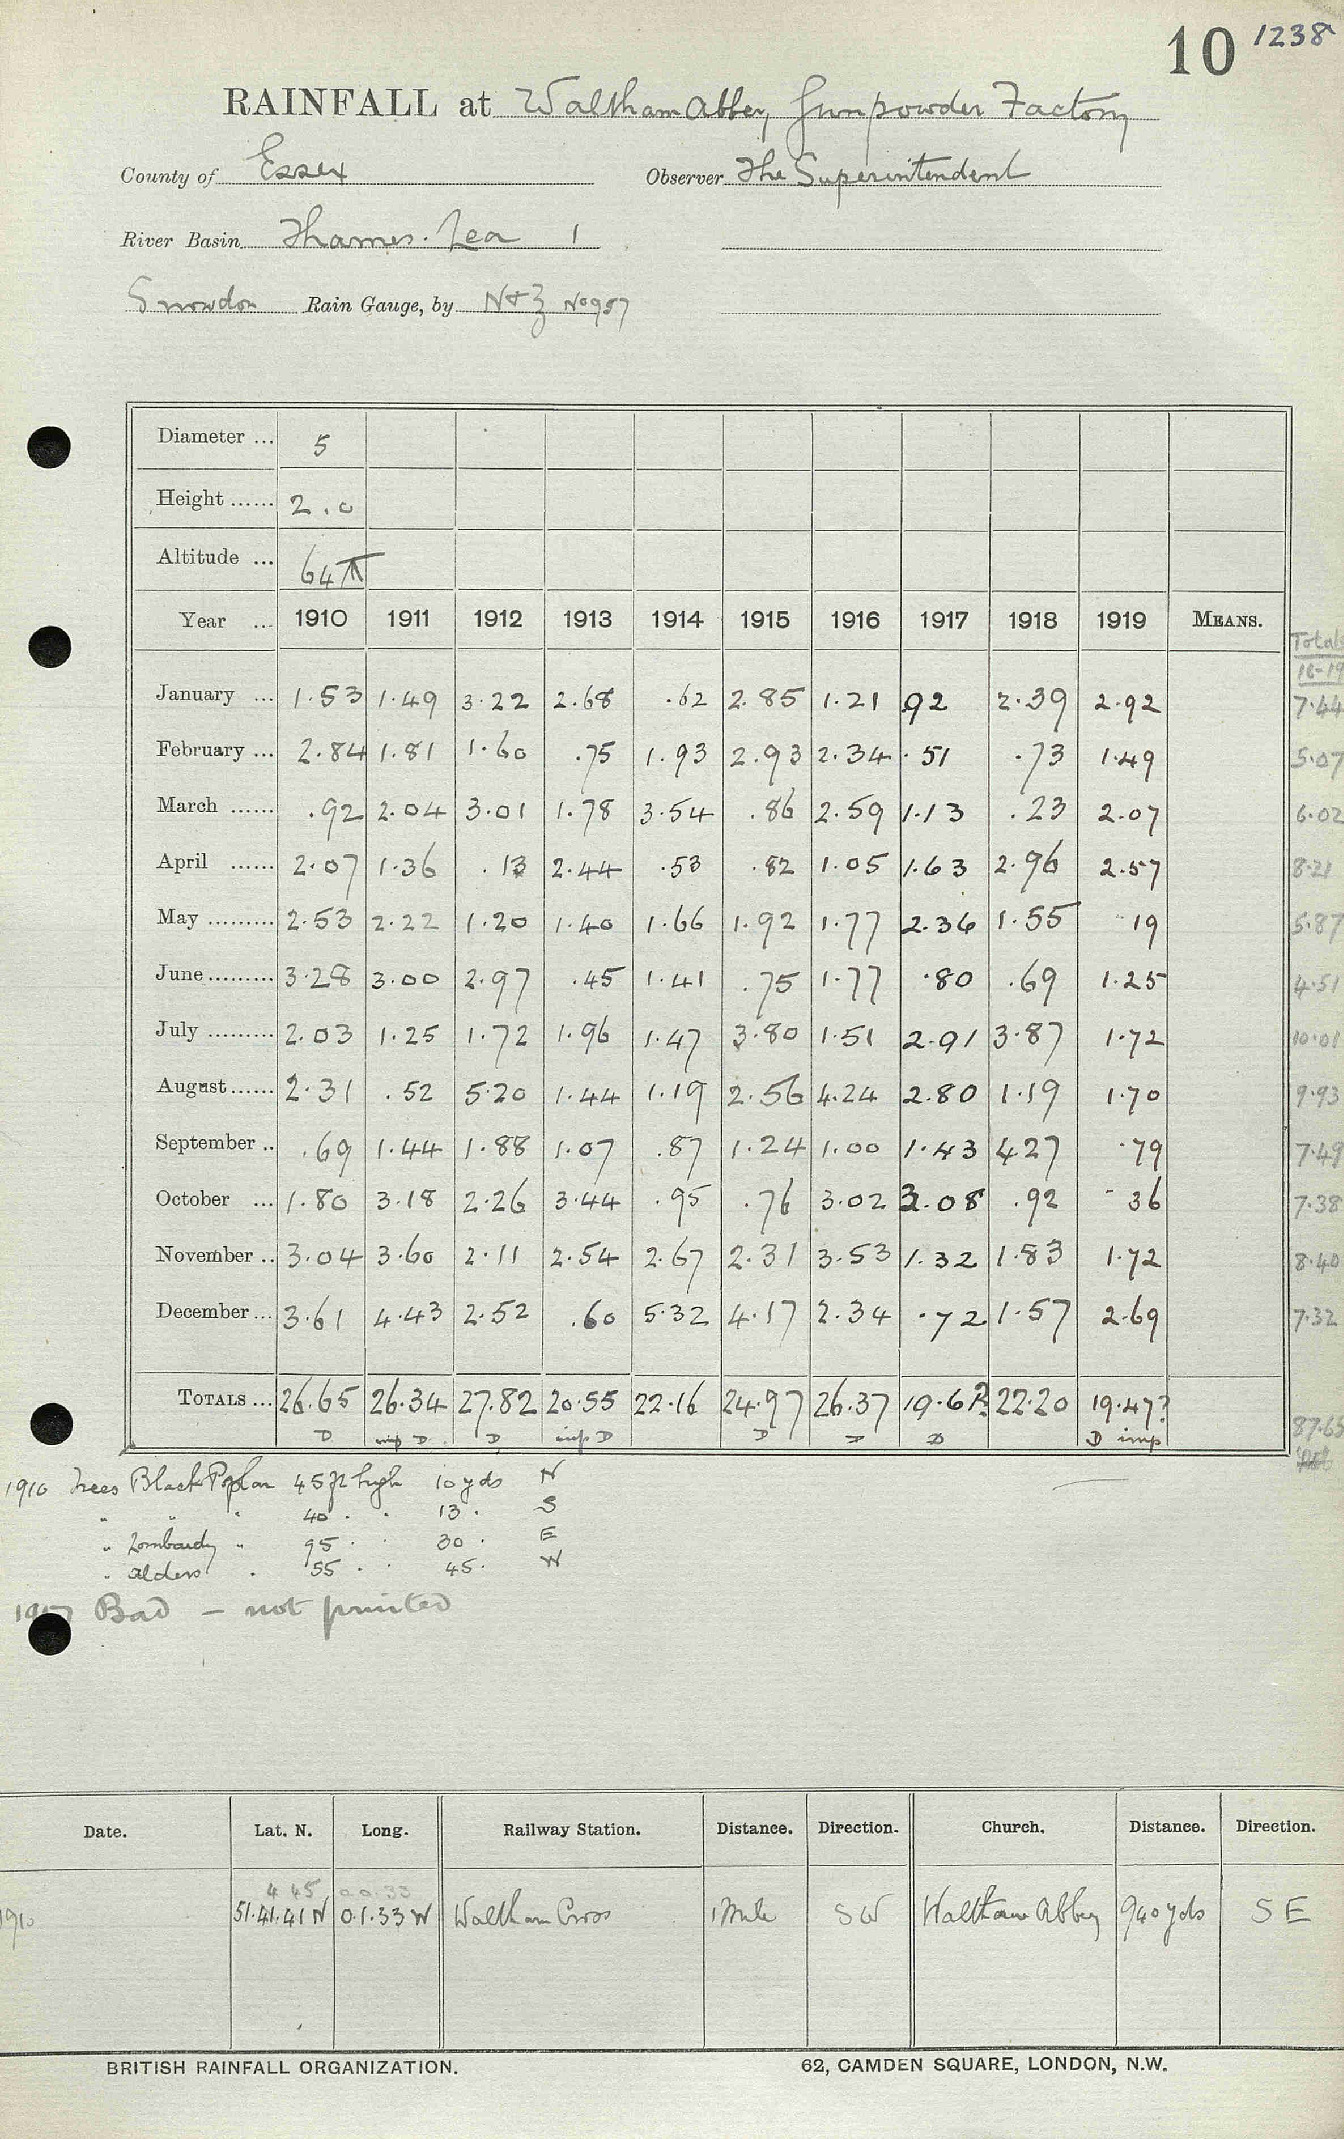 10 1238
RAINFALL at Waltham Abbey, Gunpowder Factory
County of Essex Observer The Superintendent
River Basin Thames. Lea 1
Snowdon Rain Gauge, by N & Z No 957
Diameter ... 5
Height ...... 2.0
Altitude ... 64 ft
Year ... 1910 1911 1912 1913 1914 1915 1916 1917 1918 1919 MEANS. Total 16-19
January ... 1.53 1.49 3.22 2.68 .62 2.85 1.21 .92 2.39 2.92 7.44
February ... 2.84 1.81 1.60 .75 1.93 2.93 2.34 .51 .73 1.49 5.07
March ...... .92 2.04 3.01 1.78 3.54 .86 2.59 1.13 .23 2.07 6.02
April ...... 2.07 1.36 .13 2.44 .53 .82 1.05 1.63 2.96 2.57 8.21
May ......... 2.53 2.22 1.20 1.40 1.66 1.92 1.77 2.36 1.55 .19 5.87
June ......... 3.28 3.00 2.97 .45 1.41 .75 1.77 .80 .69 1.25 4.51
July ......... 2.03 1.25 1.72 1.96 1.47 3.80 1.51 2.91 3.87 1.72 10.01
August ...... 2.31 .52 5.20 1.44 1.19 2.56 4.24 2.80 1.19 1.70 9.93
September .. .69 1.44 1.88 1.07 .87 1.24 1.00 1.43 4.27 .79 7.49
October ... 1.80 3.18 2.26 3.44 .95 .76 3.02 3.08 .92 .36 7.38
November .. 3.04 3.60 2.11 2.54 2.67 2.31 3.53 1.32 1.83 1.72 8.40
December ... 3.61 4.43 2.52 .60 5.32 4.17 2.34 .72 1.57 2.69 7.32
TOTALS ... 26.65 26.34 27.82 20.55 22.16 24.97 26.37 19.61? 22.20 19.47? 87.65
D imp D D imp D D D D D imp
1910 Trees Black Poplar 45 ft high 10 yds N
" " " 40 . . 13 . S
" Lombardy " 95 . . 30 . E
. alders . 55 . . 45 . W
1917 Bad - not printed
Date. Lat. N. Long. Railway Station. Distance. Direction. Church. Distance. Direction.
4 45 00.33
1910 51.41.41 N 0.1.33 W Waltham Cross 1 Mile SW Waltham Abbey 940 yds S E
BRITISH RAINFALL ORGANIZATION. 62, CAMDEN SQUARE, LONDON, N.W.